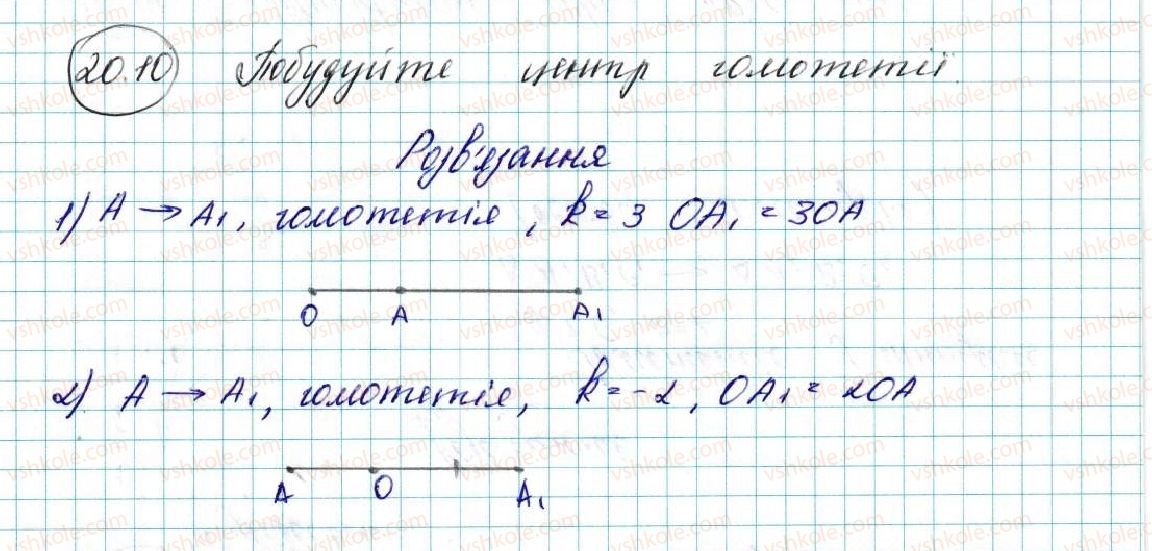 20.10 Побудуйте центр гомотетії.
Розв'язання
1) A → A₁, гомотетія, k = 3 OA₁ = 3OA
O A A₁
2) A → A₁, гомотетія, k = -2, OA₁ = 2OA
A O A₁
vshkole.com